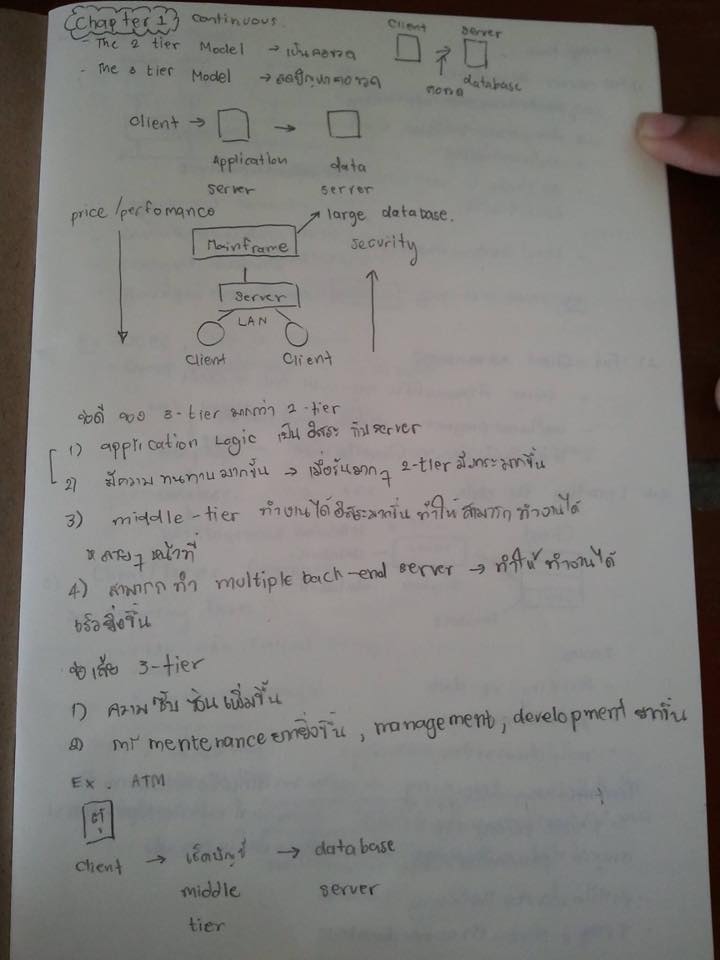 Chapter 1 continuous.
- The 2 tier Model → เป็นคอขวด
Client Server
- The 3 tier Model → ลดปัญหาคอขวด
คอขวด database
Client → →
Application data
server server
price/perfomance
→ large database.
Mainframe security
server
LAN
Client Client
ข้อดี ของ 3-tier มากกว่า 2-tier
1) application Logic เป็น อิสระ กับ server
2) มีความ ทนทาน มากขึ้น → เมื่อรันมาก ๆ 2-tier มีภาระมากขึ้น
3) middle-tier ทำงานได้ อิสระมากขึ้น ทำให้ สามารถ ทำงานได้
หลาย ๆ หน้าที่
4) สามารถ ทำ multiple back-end server → ทำให้ ทำงานได้
เร็วยิ่งขึ้น
ข้อเสีย 3-tier
1) ความ ซับ ซ้อน เพิ่มขึ้น
2) การ mentenance ยากยิ่งขึ้น, management, development ยากขึ้น
EX. ATM
ตู้
client → เช็คบัญชี → database
middle server
tier